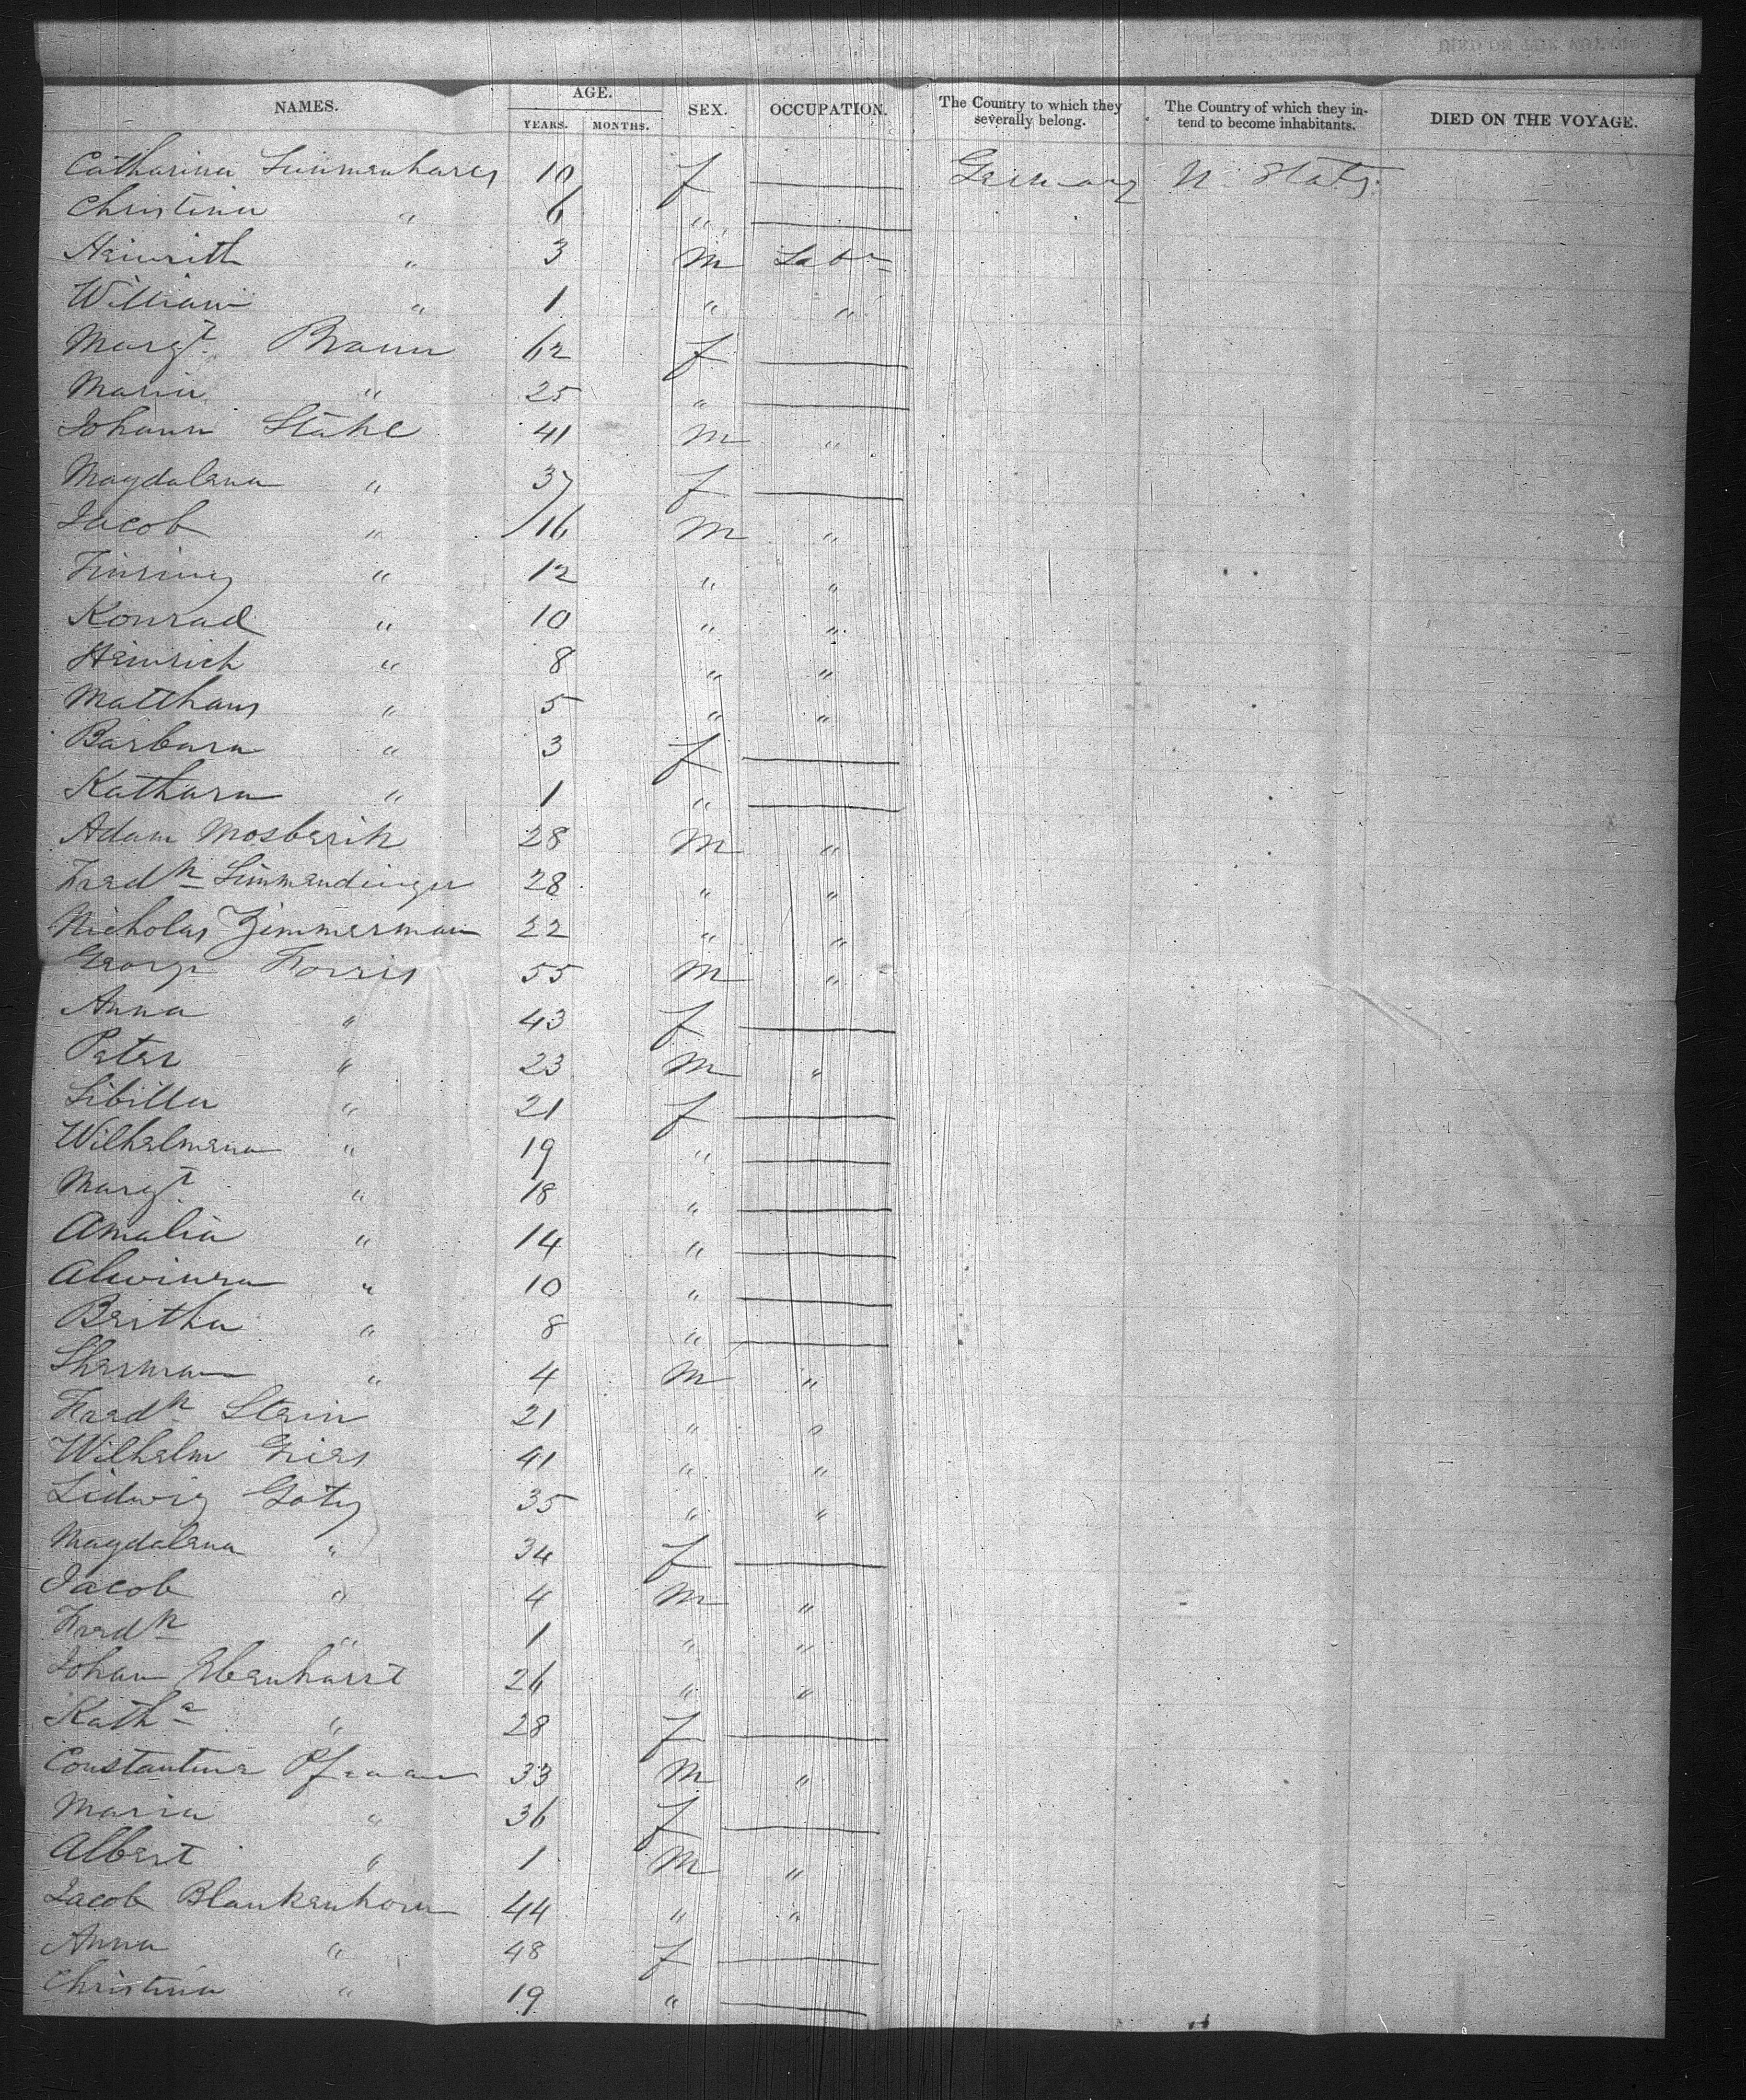 NAMES. AGE. YEARS. MONTHS. SEX. OCCUPATION. The Country to which they severally belong. The Country of which they intend to become inhabitants. DIED ON THE VOYAGE.
Catharina 10 f — Germany U. States.
Christina " 6 " —
Heinrith " 3 M Labr
William " 1 " "
Margt. Braun 62 f —
Maria " 25 " —
Johann Stahl 41 M "
Magdalena " 37 f —
Jacob " 16 M "
" 12 " "
Konrad " 10 " "
Heinrich " 8 " "
Matthaus " 5 " "
Barbara " 3 f —
Kathara " 1 " —
Adam Mosberik 28 M "
Fredk 28 " "
Nicholas Zimmerman 22 " "
George Forris 55 M "
Anna " 43 f —
Peter " 23 M "
Sibilla " 21 f —
Wilhelmena " 19 " —
Margt. " 18 " —
Amalia " 14 " —
" 10 " —
Bertha " 8 " —
Sherman " 4 M "
Fredk Stein 21 " "
Wilhelm Gries 41 " "
Lidwig Gotz 35 " "
Magdalena " 34 f —
Jacob " 4 M "
Fredk " 1 " "
Johan Ebenharst 26 " "
Katha " 28 f —
Constantine 33 M "
Maria " 36 f —
Albert " 1 M "
Jacob Blankenhorn 44 " "
Anna " 48 f —
Christina " 19 " —